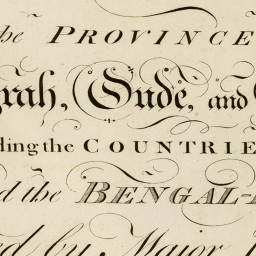 the PROVINCE
grah, Oude, and
ding the COUNTRIE
d the BENGAL-
ed by Major